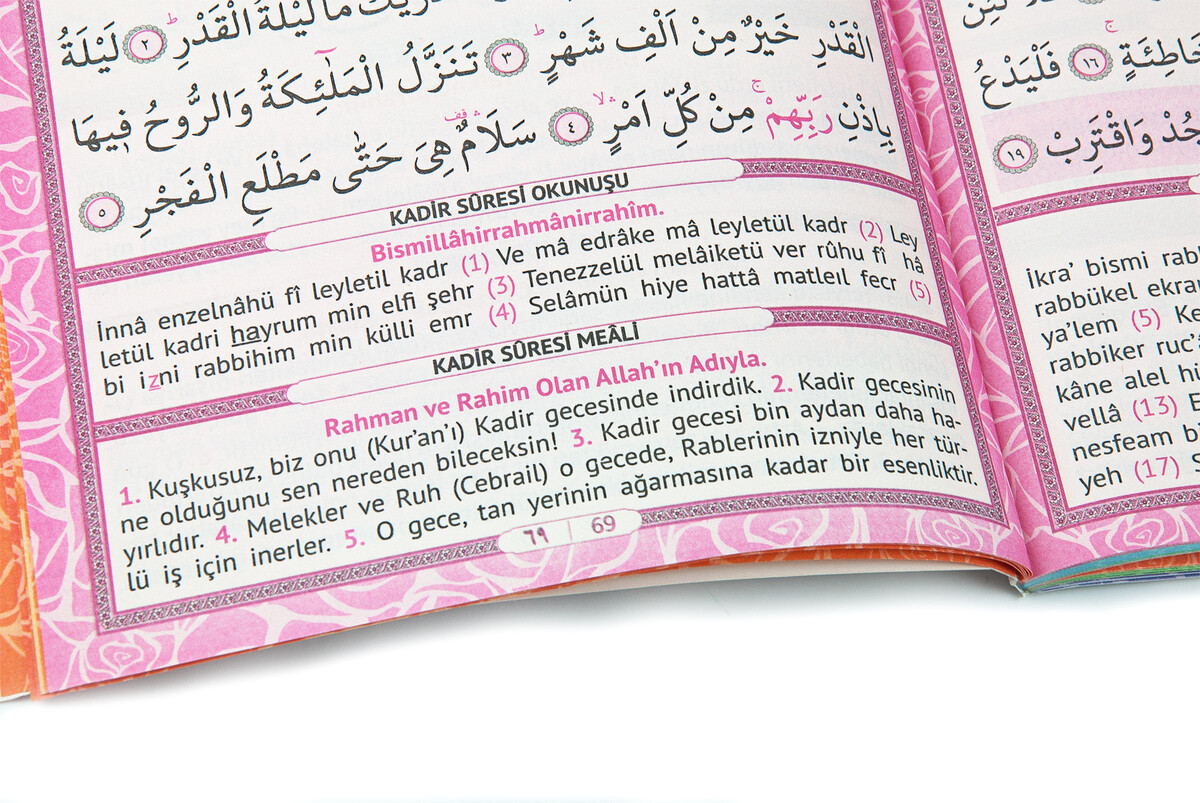 مَا لَيْلَةُ الْقَدْرِ ﴿٢﴾ لَيْلَةُ
الْقَدْرِ خَيْرٌ مِنْ اَلْفِ شَهْرٍ ﴿٣﴾ تَنَزَّلُ الْمَلٰٓئِكَةُ وَالرُّوحُ ف۪يهَا
بِاِذْنِ رَبِّهِمْ مِنْ كُلِّ اَمْرٍ ﴿٤﴾ سَلَامٌ هِيَ حَتّٰى مَطْلَعِ الْفَجْرِ ﴿٥﴾
KADİR SÛRESİ OKUNUŞU
Bismillâhirrahmânirrahîm.
İnnâ enzelnâhü fî leyletil kadr (1) Ve mâ edrâke mâ leyletül kadr (2) Ley
letül kadri hayrum min elfi şehr (3) Tenezzelül melâiketü ver rûhu fî hâ
bi izni rabbihim min külli emr (4) Selâmün hiye hattâ matleıl fecr (5)
KADİR SÛRESİ MEÂLİ
Rahman ve Rahim Olan Allah’ın Adıyla.
1. Kuşkusuz, biz onu (Kur’an’ı) Kadir gecesinde indirdik. 2. Kadir gecesinin
ne olduğunu sen nereden bileceksin! 3. Kadir gecesi bin aydan daha ha-
yırlıdır. 4. Melekler ve Ruh (Cebrail) o gecede, Rablerinin izniyle her tür-
lü iş için inerler. 5. O gece, tan yerinin ağarmasına kadar bir esenliktir.
٦٩ | 69
﴿١٦﴾ فَلْيَدْعُ
وَاقْتَرِبْ ﴿١٩﴾
İkra’ bismi rab
rabbükel ekra
ya’lem (5) Ke
rabbiker ruc’
kâne alel hü
vellâ (13) E
nesfeam bi
yeh (17) S